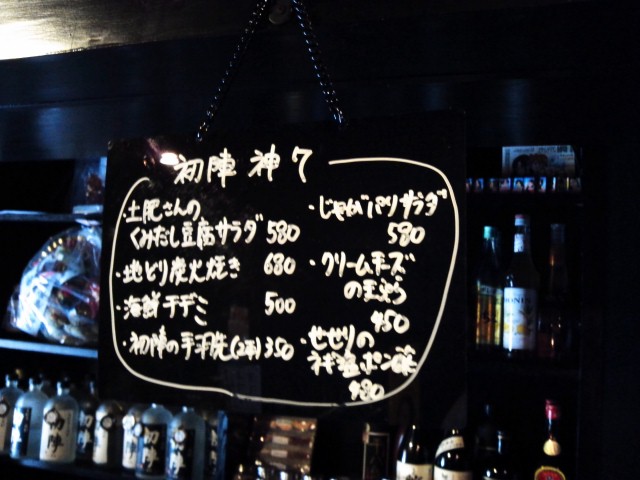 初陣 神7
・土肥さんの
くみだし豆腐サラダ 580
・地どり炭火焼き 680
・海鮮チヂミ 500
・初陣の手羽先(2本) 350
・じゃがパリサラダ
580
・クリームチーズ
の天ぷら
450
・せせりの
ネギ塩ポン炒
480
初陣